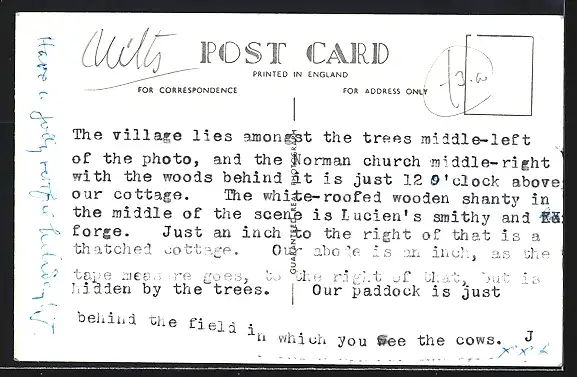 Wilts
POST CARD
PRINTED IN ENGLAND
FOR CORRESPONDENCE
FOR ADDRESS ONLY
The village lies amongst the trees middle-left
of the photo, and the Norman church middle-right
with the woods behind it is just 12 O'clock above
our cottage. The white-roofed wooden shanty in
the middle of the scene is Lucien's smithy and
forge. Just an inch to the right of that is a
thatched cottage. Our abode is an inch, as the
tape measure goes, to the right of that, but is
hidden by the trees. Our paddock is just
behind the field in which you see the cows. J
x x x
GUARANTEED REAL PHOTOGRAPH
Have a jolly restful holiday! J.